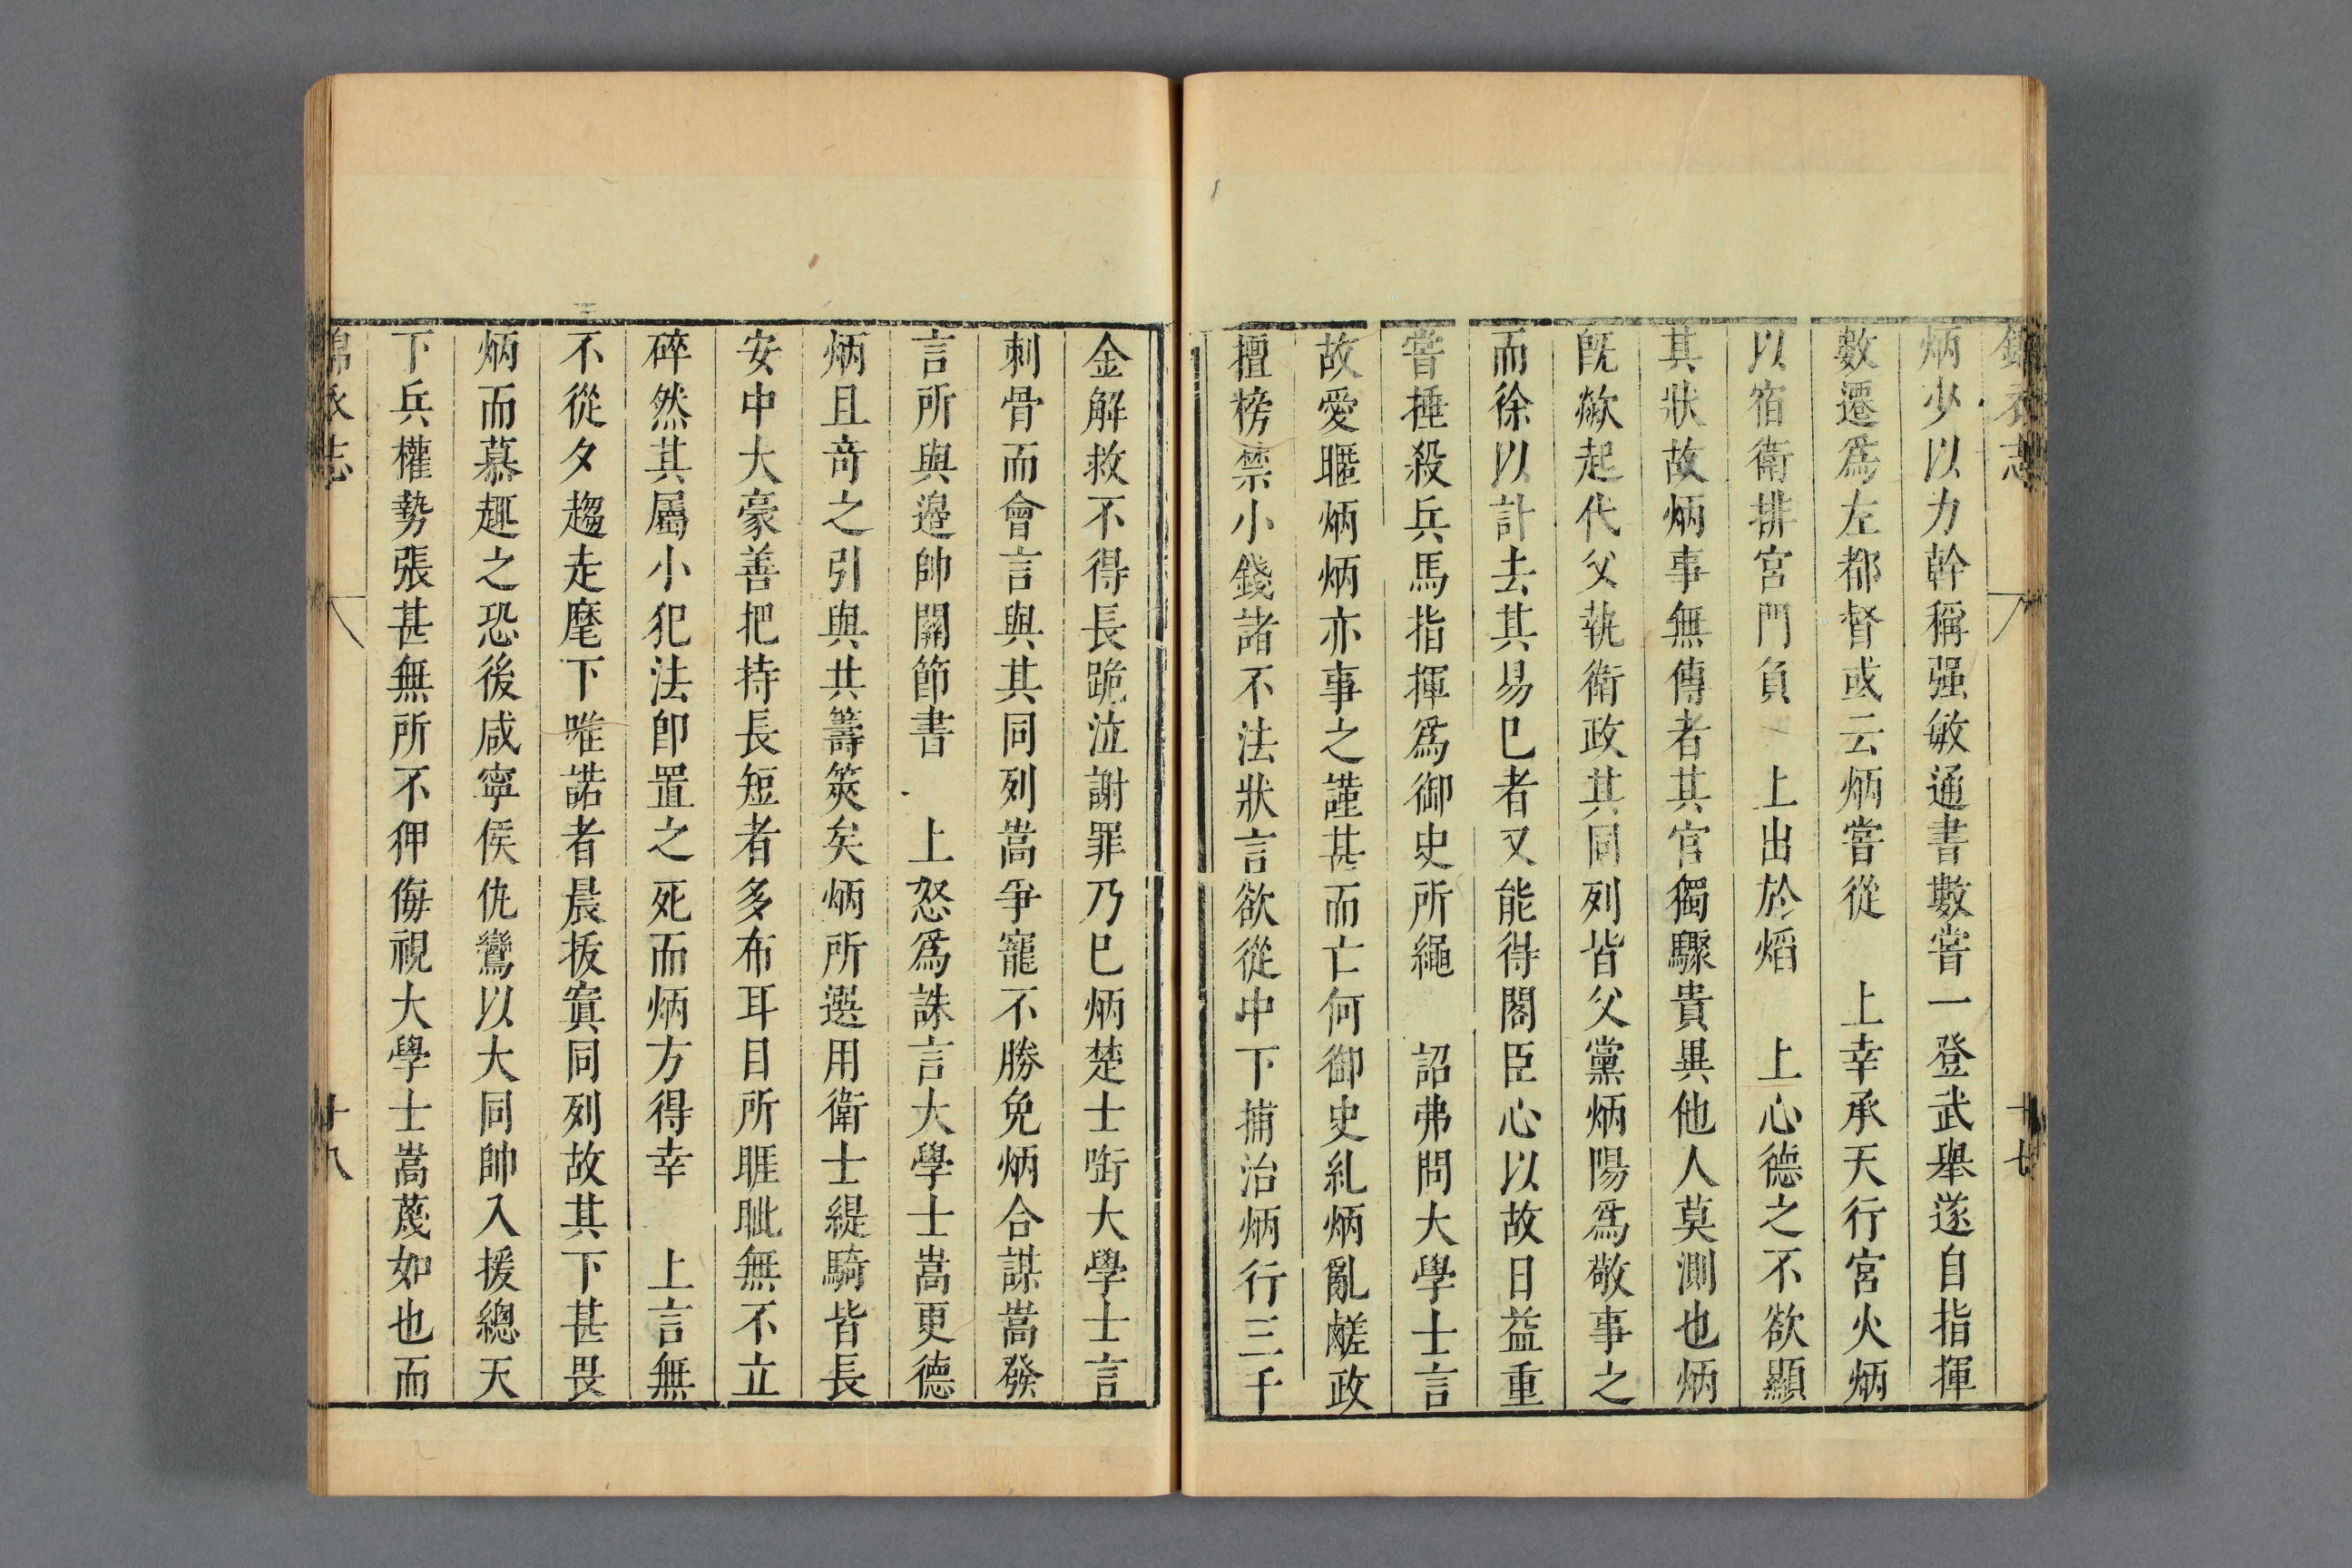 錦衣志
十七
炳少以力幹稱强敏通書數嘗一登武舉遂自指揮
數遷爲左都督或云炳嘗從　上幸承天行宮火炳
以宿衛排宮門負　上出於熖　上心德之不欲顯
其狀故炳事無傳者其官獨驟貴異他人莫測也炳
旣歘起代父執衛政其同列皆父黨炳陽爲敬事之
而徐以計去其易已者又能得閣臣心以故日益重
嘗捶殺兵馬指揮爲御史所繩　詔弗問大學士言
故愛暱炳炳亦事之謹甚而亡何御史糺炳亂鹺政
擅榜禁小錢諸不法狀言欲從中下捕治炳行三千
金解救不得長跪泣謝罪乃巳炳楚士啣大學士言
刺骨而會言與其同列嵩爭寵不勝免炳合謀嵩發
言所與邉帥關節書　上怒爲誅言大學士嵩更德
炳且竒之引與共籌筴矣炳所選用衛士緹騎皆長
安中大豪善把持長短者多布耳目所睚眦無不立
碎然其屬小犯法卽置之死而炳方得幸　上言無
不從夕趨走麾下唯諾者晨拔寘同列故其下甚畏
炳而慕趣之恐後咸寧侯仇鸞以大同帥入援總天
下兵權勢張甚無所不狎侮視大學士嵩蔑如也而
錦衣志
十八